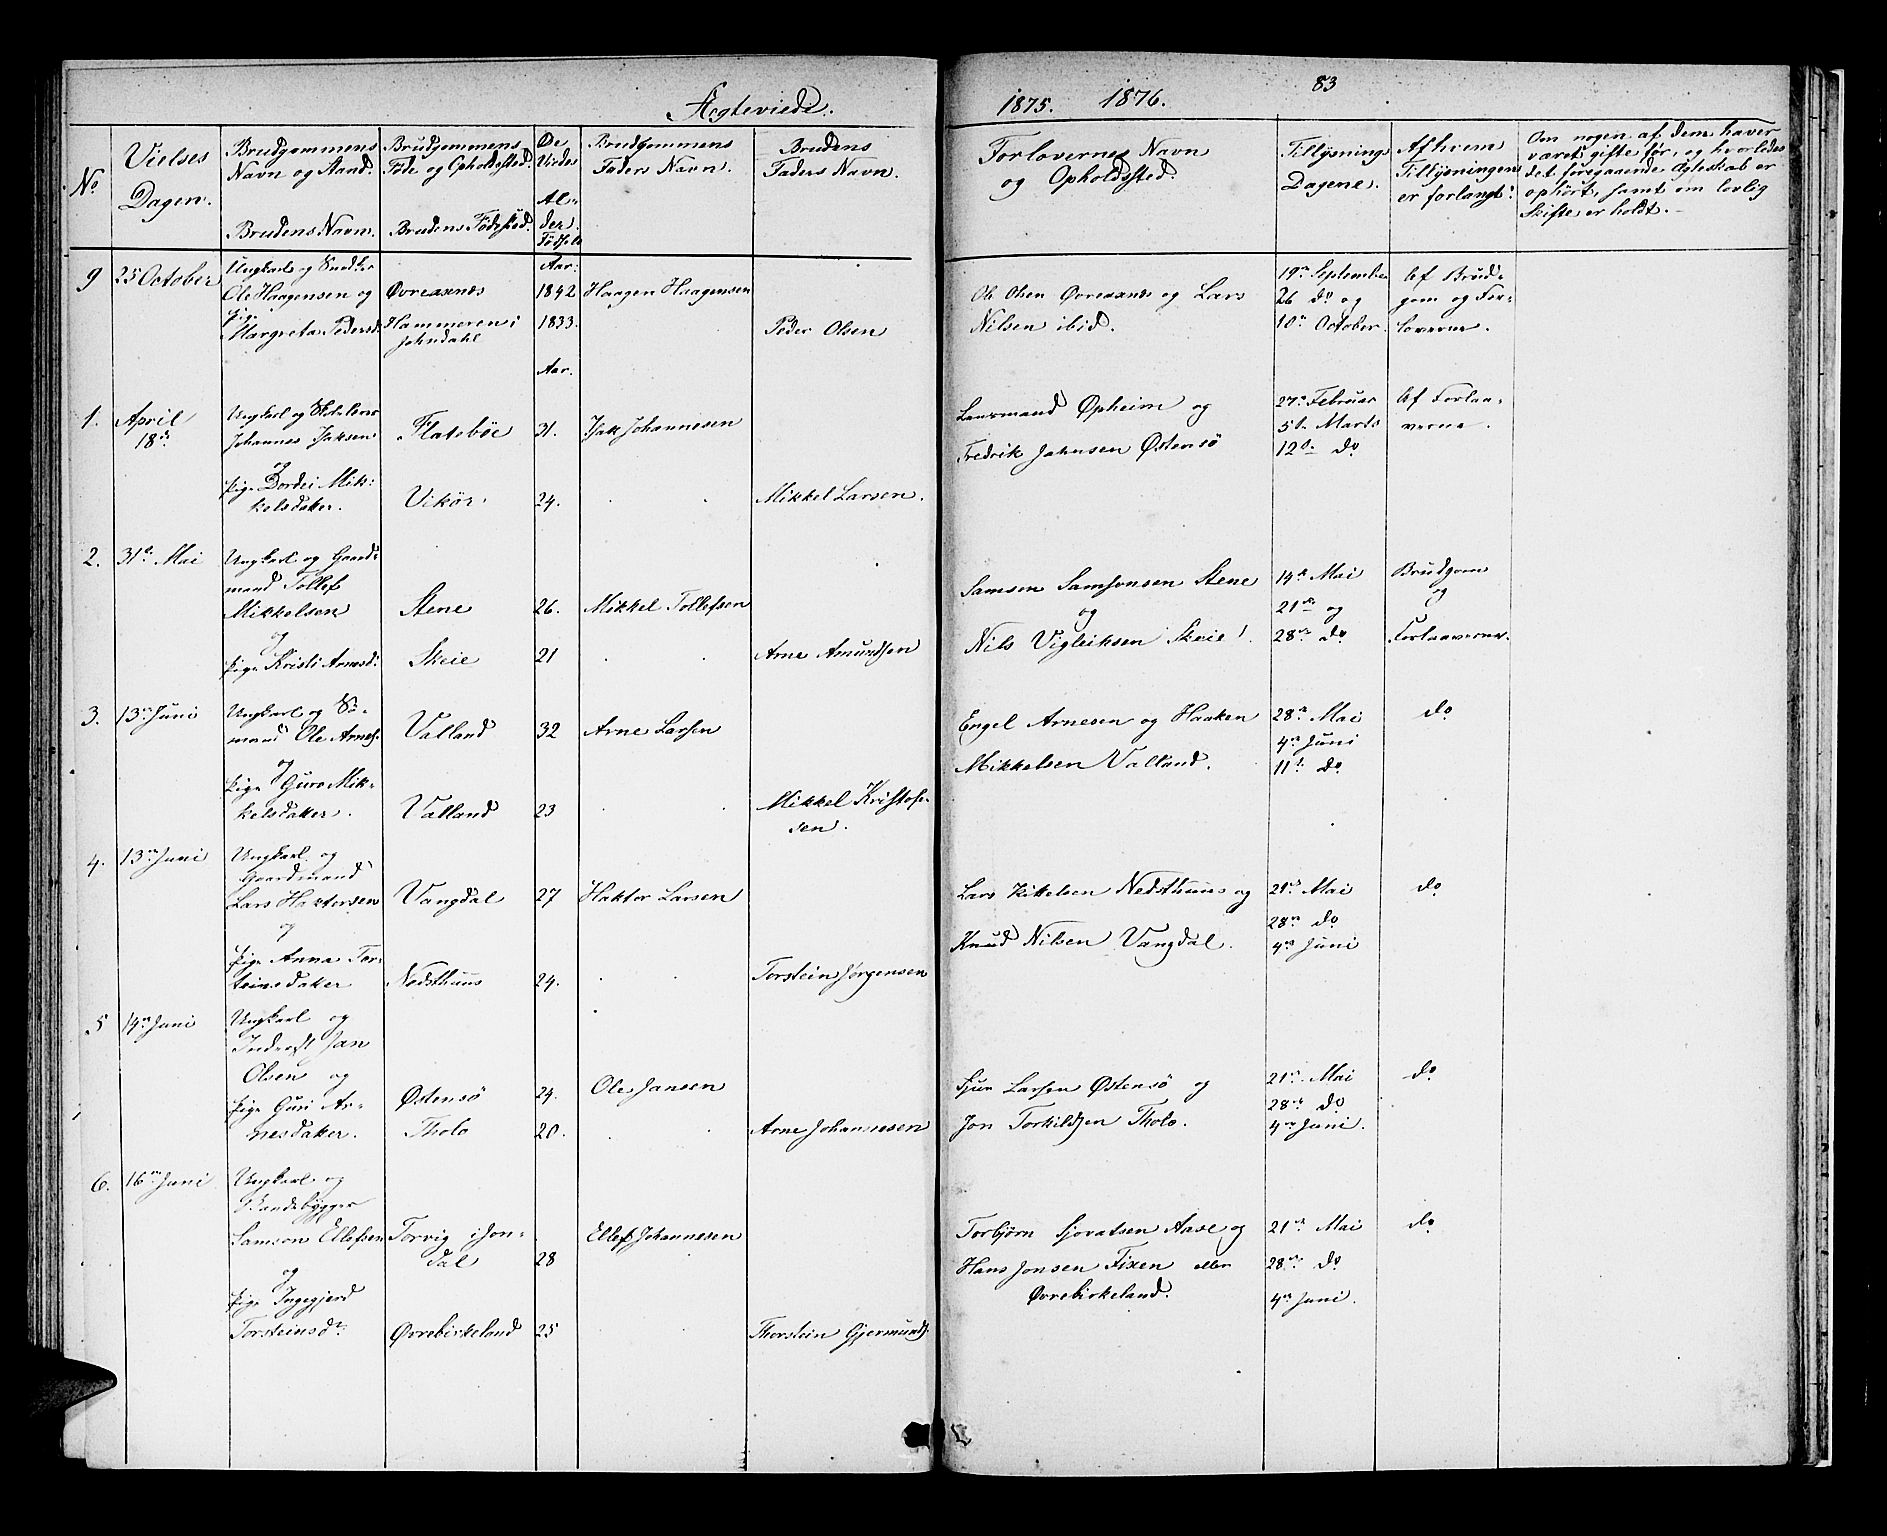 Ægteviede.
1875. 1876.
83
No
Vielses Dagen.
Brudgommens Navn og Stand.
Brudens Navn.
Brudgommens Føde og Opholdssted.
Brudens Fødested.
De Viedes Al- der. Fødsels Aar:
Brudgommens Faders Navn.
Brudens Faders Navn.
Forlovernes Navn og Opholdssted.
Tillysnings Dagene.
Af hvem Tillysningen er forlangt.
Om nogen af dem haver
været gifte før, og hvorledes
det foregaaende Ægteskab er
ophørt, samt om lovlig
Skifte er holdt. —
9 25 October
Ungkarl og Snedker
Ole Haagensen og Øvreaxnes 1842 Haagen Haagensen
Pige
Margreta Pedersd. Hammeren i Johndahl 1833. Peder Olsen
Aar.
Ole Olsen Øvreaxnes og Lars
Nilsen ibid.
19de September
26 do og
10de October.
Af Brud-
gom og For-
loverne.
1. April 18de
Ungkarl og Skolelærer
Johannes Jaksen Flatebøe 31. Jak Johannesen
og
Pige Dordei Mik-
kelsdatter. Vikør. 24. Mikkel Larsen.
Lensmand Opheim og
Fredrik Johnsen Østensö
27de Februar
5te Marts
12te do
Af Forlaa-
verne.
2. 31te Mai
Ungkarl og Gaard-
mand Tollef
Mikkelsen Stene 26. Mikkel Tollefsen
og
Pige Kristi Arnesd: Skeie 21 Arne Amundsen
Samson Samsonsen Stene
og
Nils Vigleiksen Skeie.
14de Mai
21de og
28de do
Brudgom
og
Forlaaverne.
3. 13de Juni
Ungkarl og Sö-
mand Ole Arnes. Valland 32 Arne Larsen
og
Pige Guro Mik-
kelsdatter. Valland 23 Mikkel Kristofer-
sen.
Engel Arnesen og Haaken
Mikkelsen Valland.
28de Mai
4de Juni
11te do
do
4. 13de Juni
Ungkarl og
Gaardmand
Lars Haktorsen Vangdal 27 Haktor Larsen
og
Pige Anna Tor-
steinsdatter Nedsthuus 24. Torstein Jørgensen
Lars Kittelsen Nedsthuus og
Knud Nilsen Vangdal.
21de Mai
28de do
4de Juni
do
5 14de Juni
Ungkarl og
Inderst Jan
Olsen og Østensö 24. Ole Jansen
Pige Guri Ar-
nesdatter. Tholo 20. Arne Johannesen
Sjur Larsen Østensö og
Jon Torkildsen Tholo.
21de Mai
28de do
4de Juni.
do
6. 16de Juni
Ungkarl og
Samson Ellefsen Torvig i Jon-
dal 28 Ellef Johannesen
og
Pige Ingegjerd
Torsteinsdr. Øvrebirkeland 25 Thorstein Gjermunds.
Torbjørn Sjovatsen Aase og
Hans Jonsen Fixen eller
Øvrebirkeland.
21de Mai
28de do
4de Juni.
do